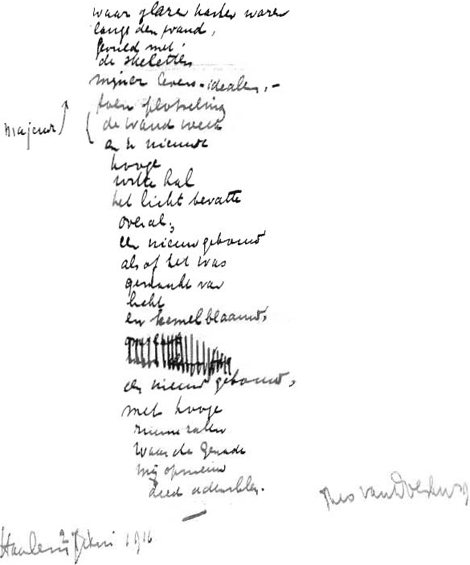 waar glazen kasten waren
langs den wand,
gevuld met
de skeletten
mijner levens-idealen, –
toen plotseling
majeur
de wand week
en 'n nieuwe
hooge
witte hal
het licht bevatte
overal;
een nieuw gebouw
als of het was
gemaakt van
licht
en hemelblaauw,
een nieuw gebouw,
met hooge
nieuwe zalen
waar de genade
mij opnieuw
deed ademhalen.
Theo van Doesburg
Haarlem 1916